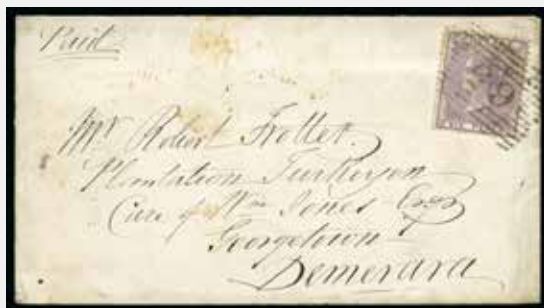 Paid
Mr Robert Trotter
Plantation Turkeyen
Care of Wm Jones Esqr
Georgetown
Demerara